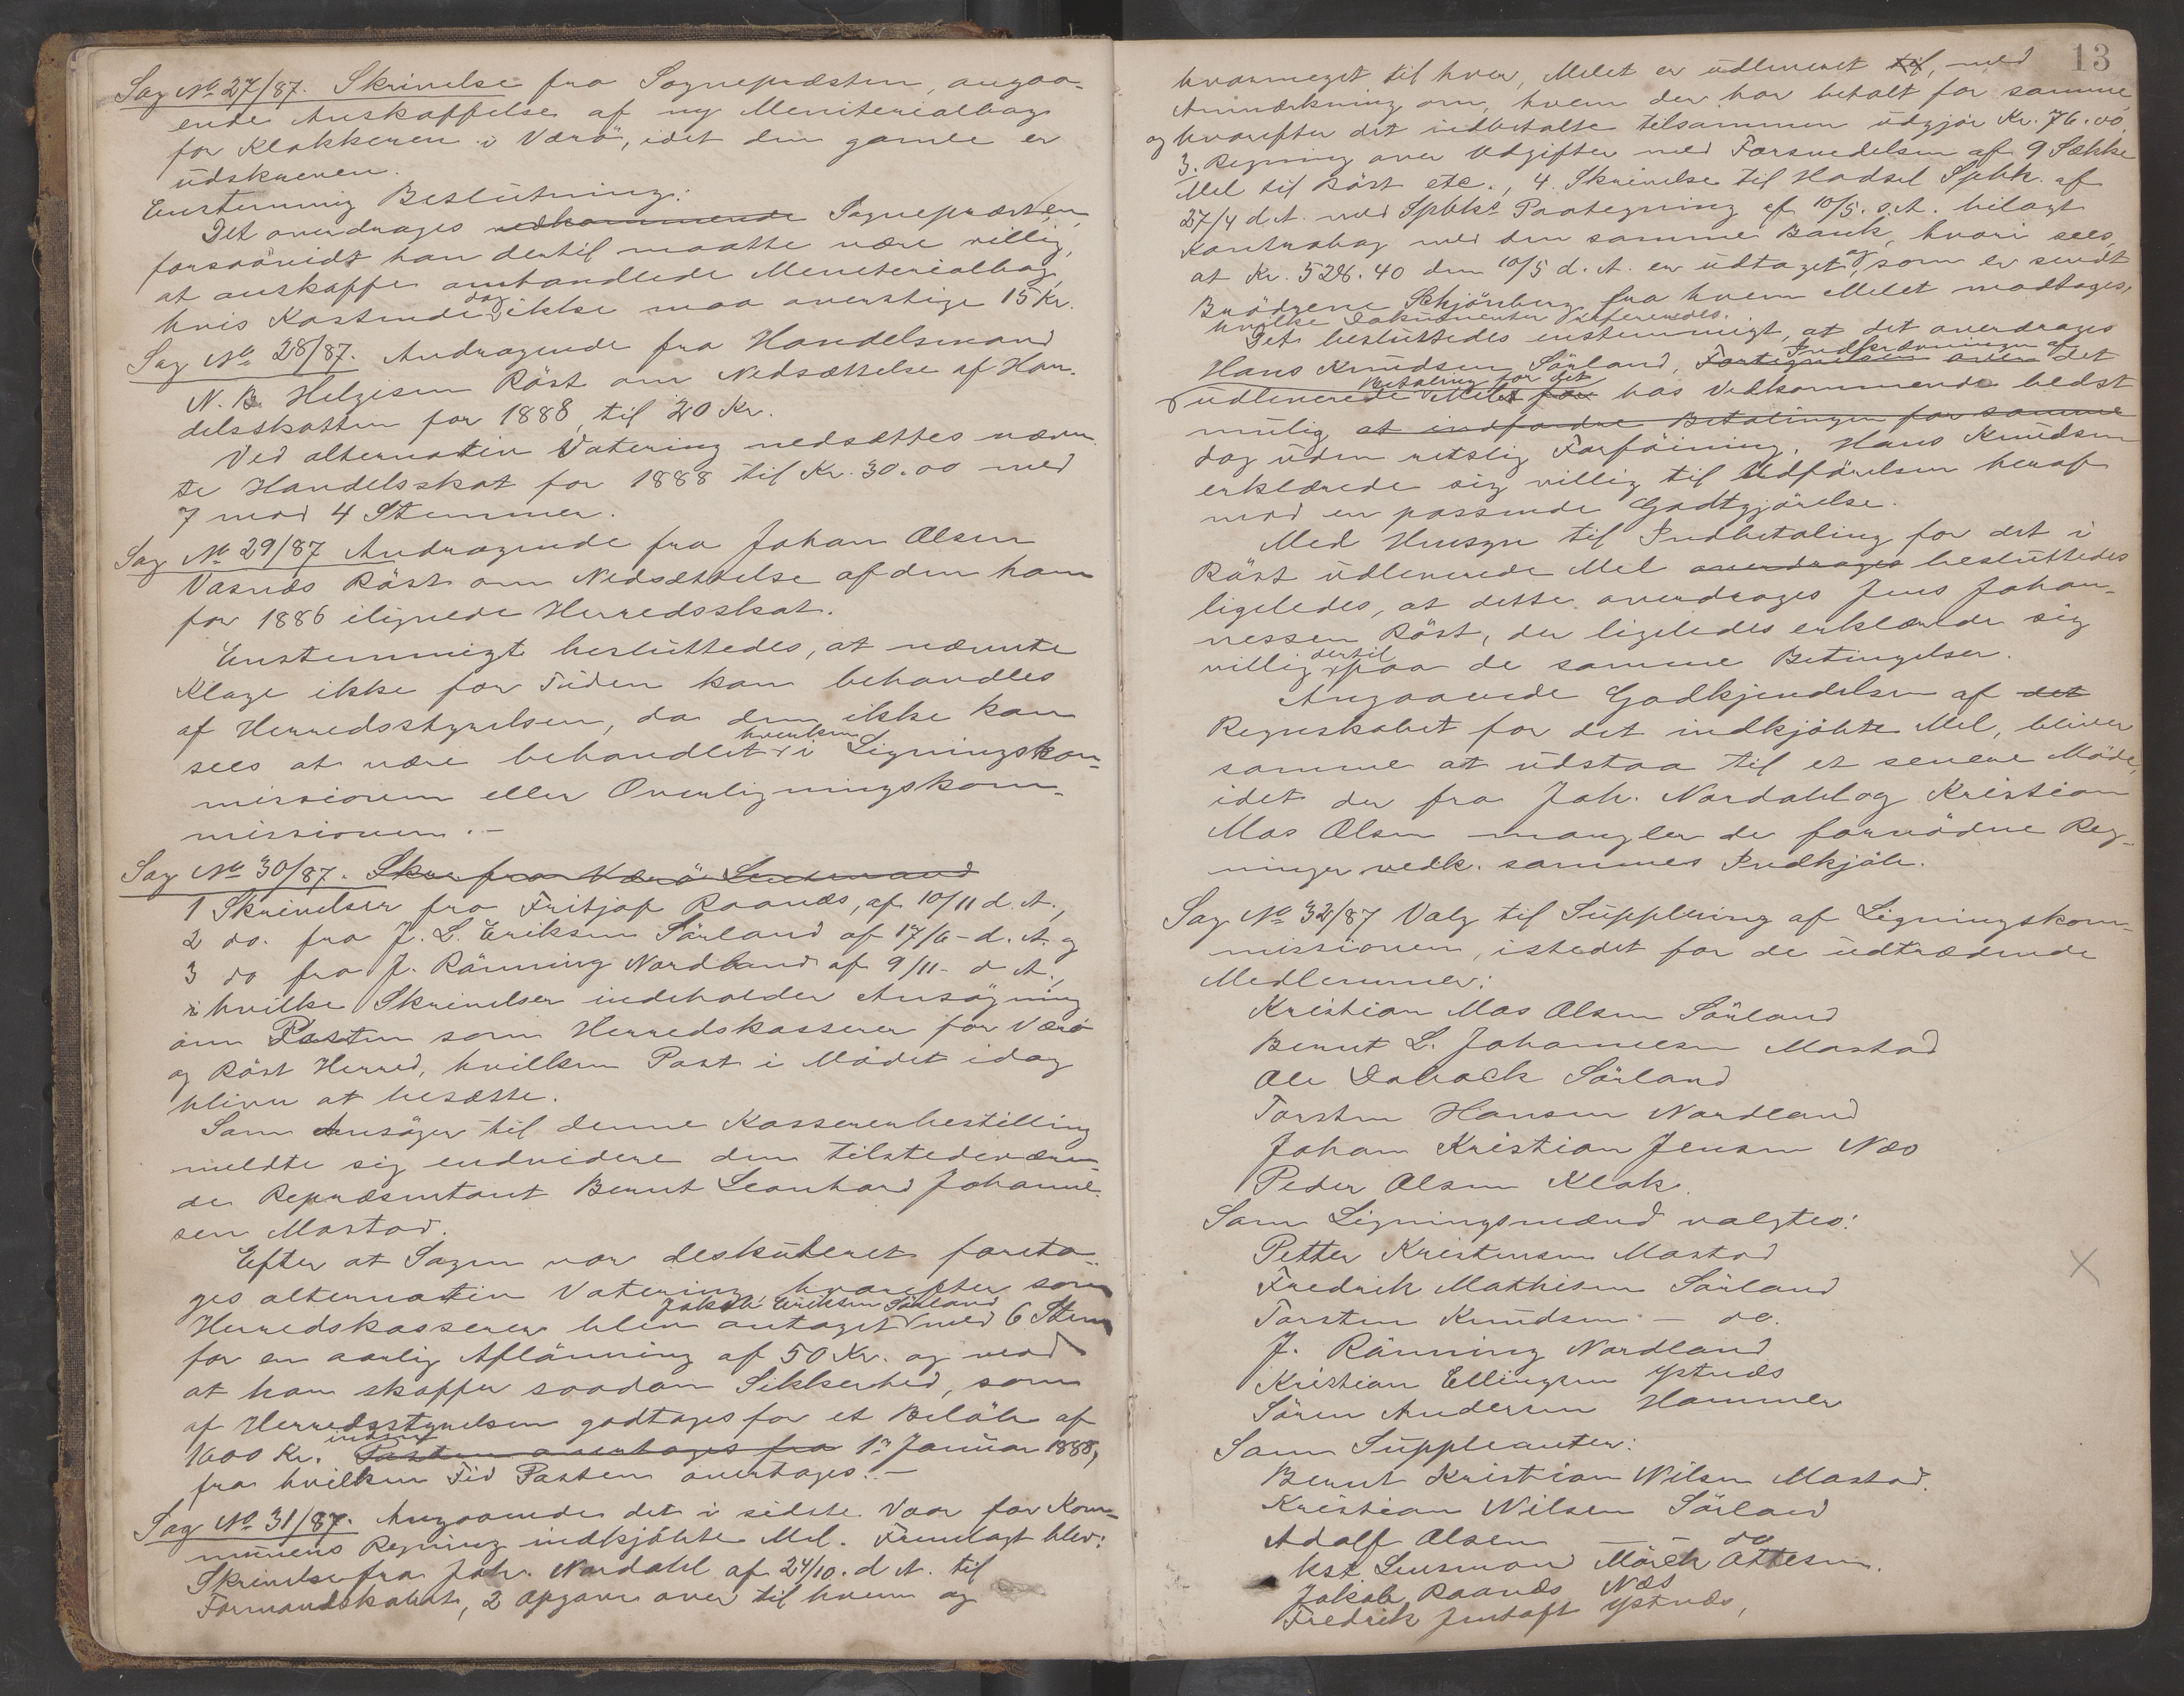 Sag No 27/87. Skrivelse fra Sognepræsten, angaa-
ende Anskaffelse af ny Meniterialbog
for Klokkeren i Værö, idet den gamle er
udskreven.
Enstemmig Beslutning:
Det overdrages vedkommende Sognepræsten,
forsaavidt han dertil maatte være villig,
at anskaffe omhandlede Meniterialbog,
hvis Kostende dog ikke maa overstige 15 Kr.
Sag No 28/87. Andragende fra Handelsmand
N. B. Helgesen Röst om Nedsættelse af Han-
delsskatten for 1888 til 20 Kr.
Ved alternativ Votering nedsættes nævn-
te Handelsskat for 1888 til Kr. 30.00 med
7 mod 4 Stemmer.
Sag No 29/87 Andragende fra Johan Olsen
Vasnæs Röst om Nedsættelse af den ham
for 1886 ilignede Herredsskat.
Enstemmigt besluttedes, at nævnte
Klage ikke for Tiden kan behandles
af Herredsstyrelsen, da den ikke kan
sees at være behandlet hverken i Ligningskom-
missionen eller Overligningskom-
missionen. –
Sag No 30/87. Skr. fra Værö Lensmand
1 Skrivelser fra Fritjof Raanæs, af 10/11 d. A.,
2 do. fra J. L. Eriksen Sörland af 17/6 - d. A. og
3 do fra J. Rönning Nordland af 9/11 - d. A.,
hvilke Skrivelser indeholder Ansögning
om Posten som Herredskasserer for Værö
og Röst Herred, hvilken Post i Mödet idag
bliver at besætte.
Som Ansöger til denne Kassererbestilling
meldte sig endvidere den tilstedeværen-
de Repræsentant Bernt Leonhard Johanne-
sen Mostad.
Efter at Sagen var deskuteret foreto-
ges alternativ Votering hvorefter som
Herredskasserer blev antaget Jakob Eriksen Sörland med 6 Stem
for en aarlig Aflönning af 50 Kr. og mod
at han skaffer saadan Sikkerhed, som
af Herredsstyrelsen godtages for et Belöb af
1600 Kr. inden Posten overtages fra 1ste Januar 1888,
fra hvilken Tid Posten overtages. –
Sag No 31/87. Angaaende det i sidste Vaar for Kom-
munens Regning indkjöbte Mel. Fremlagt blev:
Skrivelse fra Joh. Nordahl af 24/10. d. A. til
Formandskabet, 2 Opgave over til hvem og
13
hvormeget til hver, Melet er udleveret til, med
Anmærkning om, hvem der har betalt for samme
og hvorefter det indbetalte tilsammen udgjör Kr. 76.00
3. Regning over Udgifter med Forsendelsen af 9 Sække
Mel til Röst etc., 4. Skrivelse til Hadsel Spbk. af
27/4 d. A. med Spbks Paategning af 10/5. s. A. bilagt
Kontrabog med den samme Bank, hvori sees,
at Kr. 528.40 den 10/5 d. A. er udtaget, og som er sendt
Brödrene Schjönberg fra hvem Melet modtages,
hvilke Dokumenter refereredes.
Det besluttedes enstemmigt, at det overdrages
Hans Knudsen Sörland, Fortegnelsen over Indkrævningen af det
udleverede Betaling for det Melet for hos Vedkommende bedst
mulig at indfordre Betalingen for samme
dog uden retslig Forföining. Hans Knudsen
erklærede sig villig til Udförelsen heraf
mod en passende Godtgjörelse.
Med Hensyn til Indbetaling for det i
Röst udleverede Mel overdrages besluttedes
ligeledes, at dette overdrages Jens Johan-
nessen Röst, der ligeledes erklærede sig
villig dertil paa de samme Betingelser.
Angaaende Godkjendelsen af det
Regnskabet for det indkjöbte Mel, bliver
samme at udstaa til et senere Möde,
idet der fra Joh. Nordahl og Kristian
Mos Olsen mangler de fornödne Reg-
ninger vedk. sammes Indkjöb.
Sag No 32/87 Valg til Supplering af Ligningskom-
missionen, istedet for de udtrædende
Medlemmer:
Kristian Mos Olsen Sörland
Bernt L. Johannesen Mostad
Ole Dobock Sörland
Torsten Hansen Nordland
Johan Kristian Jensen Næs
Peder Olsen Klak.
Som Ligningsmænd valgtes:
Petter Kristensen Mostad
Fredrik Mathisen Sörland
Torsten Knudsen – do.
J. Rönning Nordland
Kristian Ellingsen Ystnæs
Sören Andersen Hammer
Som Suppleanter:
Bernt Kristian Nilsen Mostad.
Kristian Nilsen Sörland
Adolf Olsen – – do
kst. Lensmand Mörch Ottesen.
Jakob Raanæs Næs
Fredrik Jentoft Ystnæs,